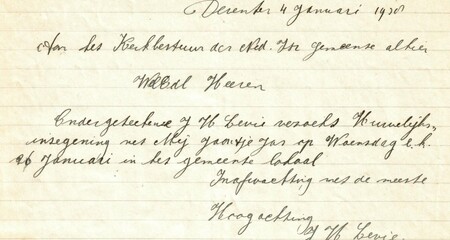 Deventer 4 Januari 1928
Aan het Kerkbestuur der Ned. Isr gemeente alhier
WelEdl Heeren
Ondergetekende J H Levie verzoekt Huwelijks,
insegening met Mej Jas op Woensdag e.k.
26 Januari in het gemeente lokaal
Inafwachting met de meeste
Hoogachting
J H Levie